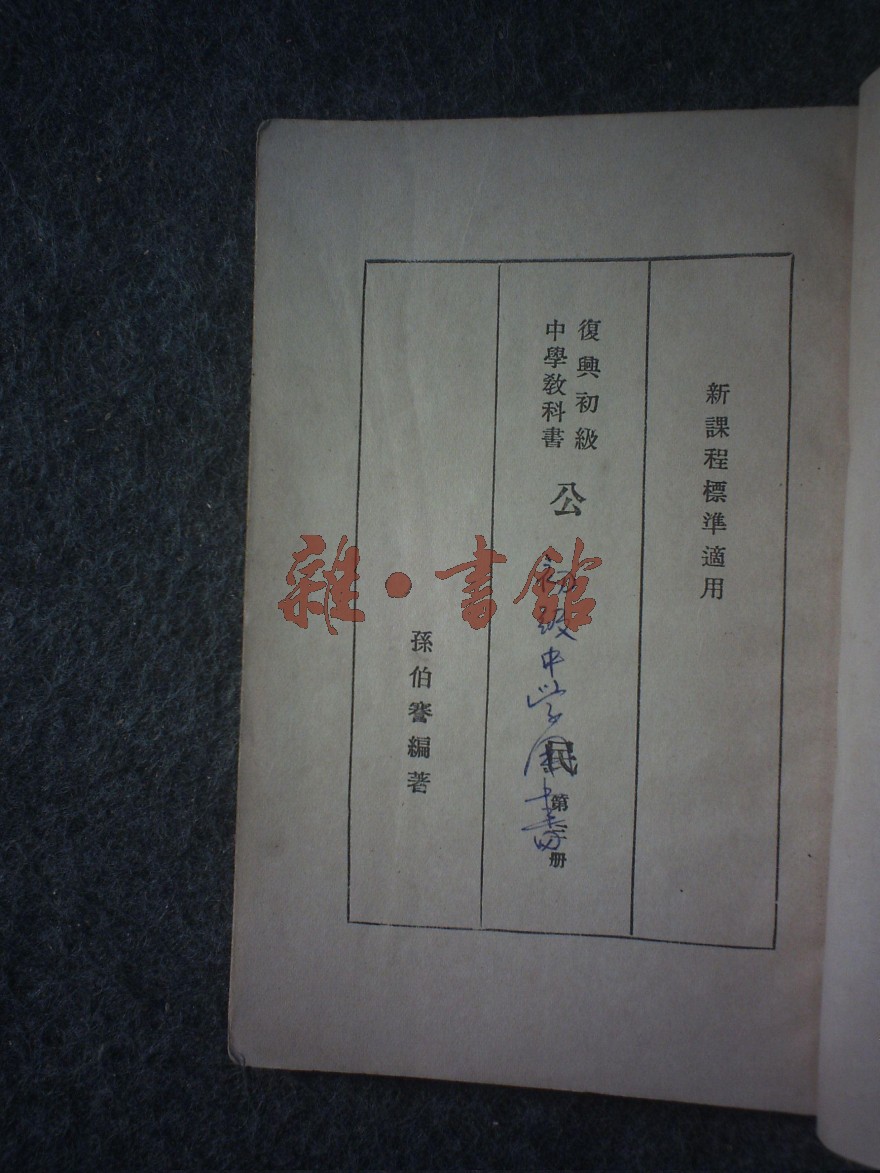 新課程標準適用
復興初級
中學教科書
公民
第二册
初级中学图书
孫伯謇編著
雜·書館